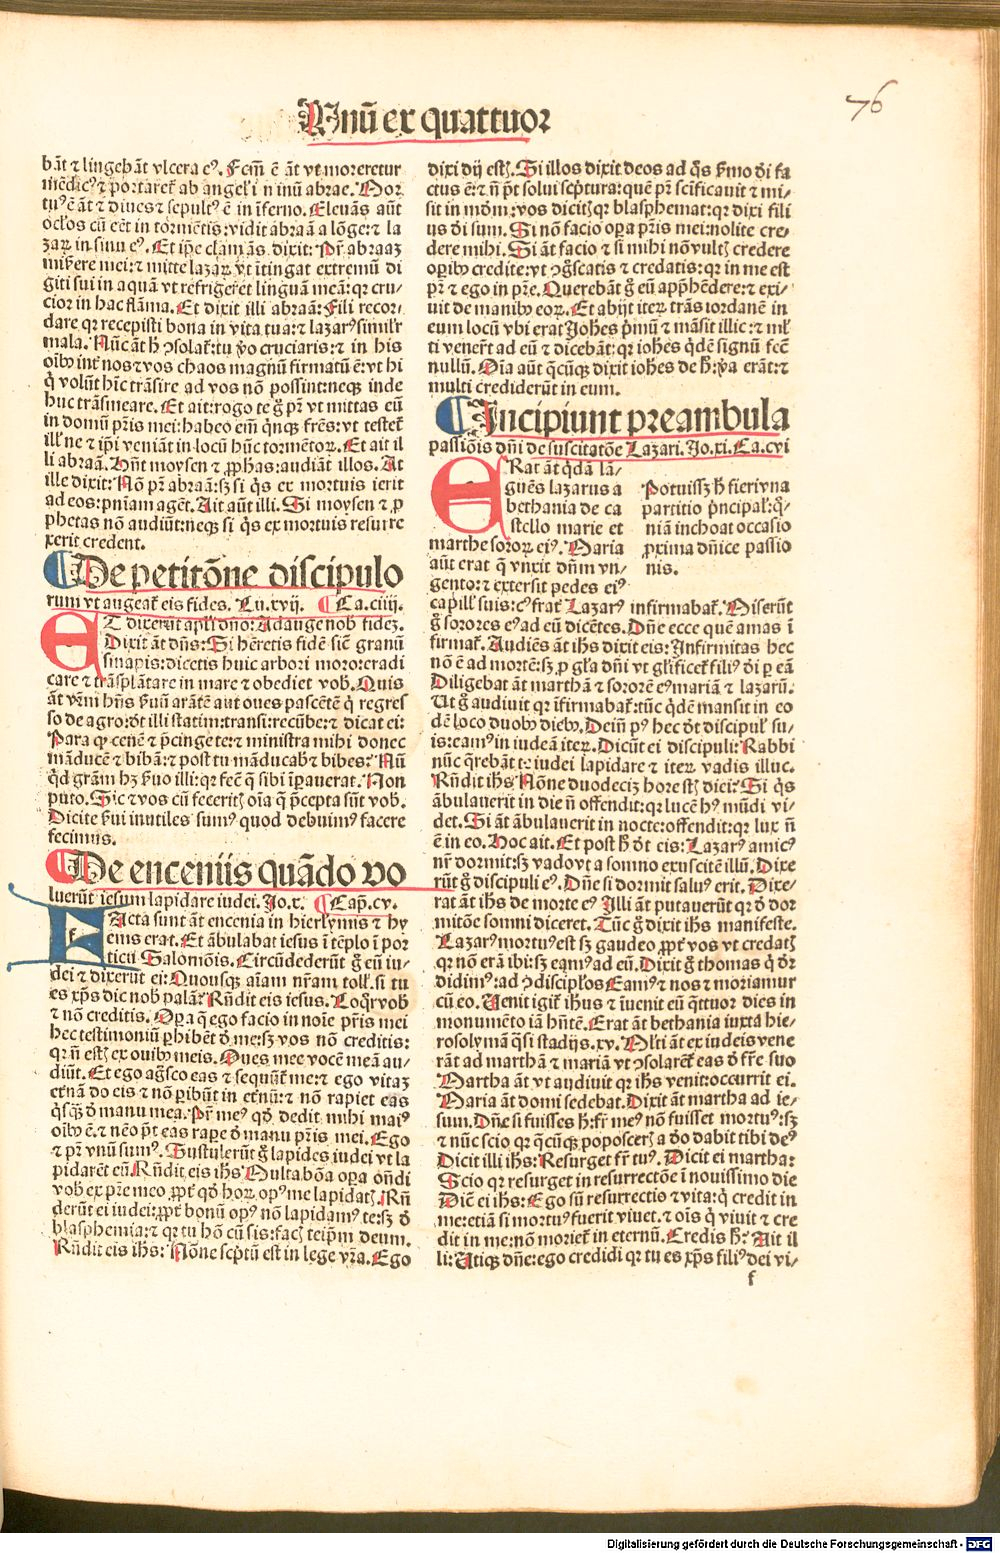 Vnū ex quattuor
76
bāt ⁊ lingebāt vlcera eꝰ. Fcm̄ ē āt vt moreretur
mēdicꝰ ⁊ portareť ab angeľi n inū abrae. Mor
tuꝰ ē āt ⁊ diues ⁊ sepultꝰ ē in īferno. Eleuās aūt
ocľos cū eēt in tormētis: vidit abraā a lōge: ⁊ la
zaꝝ in sinu eꝰ. Et ip̄e clamās dixit: Pr̄ abraaz
miserere mei: ⁊ mitte lazaꝝ vt ītingat extremū di
giti sui in aquā vt refrigeret linguā meā: qꝛ cru-
cior in hac flāma. Et dixit illi abraā: Fili recor-
dare qꝛ recepisti bona in vita tua: ⁊ lazarꝰ simiľr
mala. Nūc āt h̄ ↄsolať: tu ṽo cruciaris: ⁊ in his
oīb̾ int̄ nos ⁊ vos chaos magnū firmatū ē: vt hi
q̇ volūt hīc trāsire ad vos nō possint: neqꝫ inde
huc trāsmeare. Et ait: rogo te ḡ pr̄ vt mittas eū
in domū pr̄is mei: habeo em̄ q̇nqꝫ fr̄es: vt testeť
ill̾ ne ⁊ ip̄i veniāt in locū hūc tormētoꝝ. Et ait il
li abraā. Hn̄t moysen ⁊ ꝓphas: audiāt illos. At
ille dixit: Nō pr̄ abraā: sꝫ si q̇s ex mortuis ierit
ad eos: pn̄iam agēt. Ait aūt illi. Si moysen ⁊ ꝓ
phetas nō audiūt: neqꝫ si q̇s ex mortuis resurre
xerit credent.
De petitōne discipulo
rum vt augeať eis fides. Lu.xvij. Ca.ciiij.
ET dixerūt apl̄i dn̄o: Adauge nob̾ fidez.
Dixit āt dn̄s: Si h̄retis fidē sic̄ granū
sinapis: dicetis huic arbori moro: eradi
care ⁊ trāsplātare in mare ⁊ obediet vob̾. Quis
āt vr̄m hn̄s ẜuū arātē aut oues pascētē q̇ regres
so de agro: d̄t illi statim: transi: recūbe: ⁊ dicat ei:
Para qꝙ cenē ⁊ p̄cinge te: ⁊ ministra mihi donec
māducē ⁊ bibā: ⁊ post tu māducab̾ ⁊ bibes? Nū
q̇d grām hꝫ ẜuo illi: qꝛ fec̄ q̄ sibi īpauerat. Non
puto. Sic ⁊ vos cū feceritꝭ oīa q̄ p̄cepta sūt vob̾.
Dicite ẜui inutiles sumꝰ quod debuimꝰ facere
fecimus.
De enceniis quādo vo
luerūt iesum lapidare iudei. Jo.x. Cap̄.cv.
FActa sunt āt encenia in hierľymis ⁊ hy
ems erat. Et ābulabat iesus ī tēplo ī por
ticu Salomōis. Circūdederūt ḡ eū iu-
dei ⁊ dixerūt ei: Quousqꝫ aīam nr̄am toll̾. si tu
es xp̄s dic nob̾ palā? Rn̄dit eis iesus. Loq̇r vob̾
⁊ nō creditis. Oꝑa q̄ ego facio in noīe pr̄is mei
hec testimoniū ꝑhibēt d̄ me: sꝫ vos nō creditis:
qꝛ n̄ estꝭ ex ouib̾ meis. Oues mee vocē meā au-
diūt. Et ego agsco eas ⁊ sequūť me: ⁊ ego vitaz
et̄nā do eis ⁊ nō ꝑibūt in et̄nū: ⁊ nō rapiet eas
q̇sqꝫ d̄ manu mea. Pr̄ meꝰ qd̄ dedit mihi maiꝰ
oīb̾ ē: ⁊ nēo pt̄ eas raꝑe d̄ manu pr̄is mei. Ego
⁊ pr̄ vnū sumꝰ. Sustulerūt ḡ lapides iudei vt la
pidarēt eū. Rn̄dit eis ih̄s Multa bōa oꝑa on̄di
vob̾ ex pr̄e meo ꝓpt̄ qd̄ hoꝝ opꝰ me lapidatꝭ. Rn̄
derūt ei iudei: ꝓpt̄ bonū opꝰ nō lapidamꝰ te: sꝫ d̄
blasphemia: ⁊ qꝛ tu hō cū sis: facꝭ teip̄m deum.
Rn̄dit eis ih̄s: Nōne sc̄ptū est in lege vr̄a. Ego
dixi dij estꝭ. Si illos dixit deos ad q̄s ẜmo d̄i fa
ctus ē: ⁊ n̄ pt̄ solui sc̄ptura: quē pr̄ sc̄ificauit ⁊ mi-
sit in mōm: vos dicitꝭ qꝛ blasphemat: qꝛ dixi fili
us d̄i sum. Si nō facio oꝑa pr̄is mei: nolite cre-
dere mihi. Si āt facio ⁊ si mihi nō vultꝭ credere
oꝑib̾ credite: vt ↄgscatis ⁊ credatis: qꝛ in me est
pr̄ ⁊ ego in pr̄e. Querebāt ḡ eū app̄hēdere: ⁊ exi-
uit de manib̾ eoꝝ. Et abijt iteꝝ trās iordanē in
eum locū vbi erat Johēs p̄mū ⁊ māsit illic: ⁊ ml̾
ti vener̄t ad eū ⁊ dicebāt: qꝛ iohēs q̇dē signū fec̄
nullū. Oīa aūt q̄cūqꝫ dixit iohēs de h̄: ṽa erāt: ⁊
multi crediderūt in eum.
Incipiunt preambula
passiōis dn̄i de suscitatōe Lazari. Jo.xi. Ca.cvi
ERat āt q̇dā lā-
guēs lazarus a
bethania de ca
stello marie et
marthe soroꝝ eiꝰ. Maria
aūt erat q̄ vnxit dn̄m vn-
gento: ⁊ extersit pedes eiꝰ
Potuissꝫ h̄ fieri vna
partitio p̄ncipal̾: q̇-
niā inchoat occasio
ꝓxima dn̄ice passio
nis.
capill̾ suis: cꝰ frať Lazarꝰ infirmabať. Miserūt
ḡ sorores eꝰ ad eū dicētes. Dn̄e ecce quē amas ī
firmať. Audiēs āt ih̄s dixit eis: Infirmitas hec
nō ē ad mortē: sꝫ ꝓ gľa dn̄i vt gľificeť filiꝰ d̄i ꝑ eā
Diligebat āt marthā ⁊ sororē eꝰ mariā ⁊ lazarū.
Ut ḡ audiuit qꝛ īfirmabať: tūc q̇dē mansit in eo
dē loco duob̾ dieb̾. Dein̄ pꝰ hec d̄t discipul̾ su-
is: eamꝰ in iudeā iteꝝ. Dicūt ei discipuli: Rabbi
nūc q̄rebāt te iudei lapidare ⁊ iteꝝ vadis illuc.
Rn̄dit ih̄s Nōne duodeciz hore st̄ diei? Si q̇s
ābulauerit in die n̄ offendit: qꝛ lucē hꝰ mūdi vi-
det. Si āt ābulauerit in nocte: offendit: qꝛ lux n̄
ē in eo. Hoc ait. Et post h̄ d̄t eis: Lazarꝰ amicꝰ
nr̄ dormit: sꝫ vado vt a somno exuscitē illū. Dixe
rūt ḡ discipuli eꝰ. Dn̄e si dormit saluꝰ erit. Dixe-
rat āt ih̄s de morte eꝰ Illi āt putauerūt qꝛ d̄ dor
mitōe somni diceret. Tūc ḡ dixit ih̄s manifeste.
Lazarꝰ mortuꝰ est sꝫ gaudeo ꝓpt̄ vos vt credatꝭ
qꝛ nō erā ibi: sꝫ eamꝰ ad eū. Dixit ḡ thomas q̇ d̄r
didimꝰ: ad ↄdiscipľos Eamꝰ ⁊ nos ⁊ moriamur
cū eo. Uenit igiť ih̄us ⁊ īuenit eū q̄ttuor dies in
monumēto iā hn̄tē. Erat āt bethania iuxta hie-
rosolymā q̄si stadijs .xv. Ml̾ti āt ex iudeis vene
rāt ad marthā ⁊ mariā vt ↄsolareť eas d̄ fr̄e suo
Martha āt vt audiuit qꝛ ih̄s venit: occurrit ei.
Maria āt domi sedebat. Dixit āt martha ad ie-
sum. Dn̄e si fuisses h̄: fr̄ meꝰ nō fuisset mortuꝰ: sꝫ
⁊ nūc scio qꝛ q̄cūqꝫ poposcerꝭ a d̄o dabit tibi deꝰ
Dicit illi ih̄s: Resurget fr̄ tuꝰ. Dicit ei martha:
Scio qꝛ resurget in resurrectōe ī nouissimo die
Dic̄ ei ih̄s: Ego sū resurrectio ⁊ vita: q̇ credit in
me: etiā si mortuꝰ fuerit viuet. ⁊ oīs q̇ viuit ⁊ cre
dit in me: nō morieť in eternū. Credis h̄? Ait il
li: Utiqꝫ dn̄e: ego credidi qꝛ tu es xp̄s filiꝰ dei vi-
f
Digitalisierung gefördert durch die Deutsche Forschungsgemeinschaft - DFG